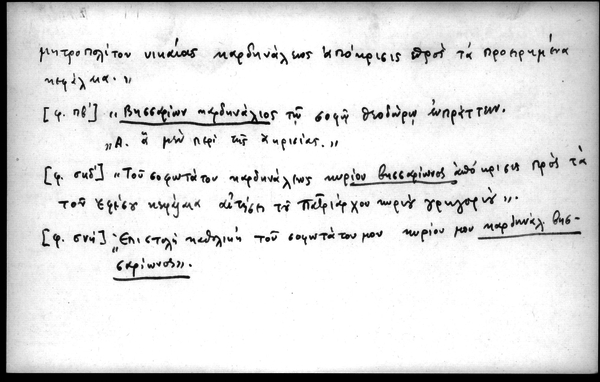 μητροπολίτου νικαίας καρδηνάλεως ἀπόκρισις πρὸς τὰ προειρημένα
κεφάλαια."
[φ. πβ'] "Βησσαρίων καρδηνάλιος τῷ σοφῷ θεοδώρῳ εὐπράττειν.
"Α. ἃ μὲν περὶ τῆς
[φ. σκδ'] "Τοῦ σοφωτάτου καρδηνάλεως κυρίου βησσαρίωνος ἀπόκρισις πρὸς τὰ
τοῦ ἐφέσου κεφάλαια αἰτήσει τοῦ Πατριάρχου κυρίου γρηγορίου".
[φ. σνή] "Ἐπιστολὴ καθολικὴ τοῦ σοφωτάτου μου κυρίου μου καρδηνάλ. βησ-
σαρίωνος".